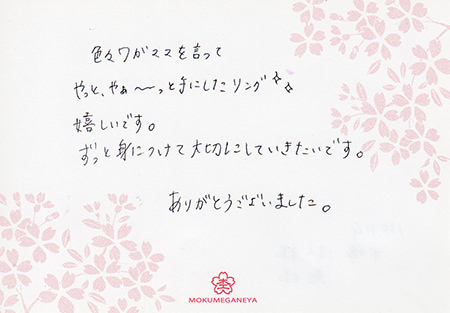 色々ワガママを言って
やっと、やぁ〜っと手にしたリング✧✧
嬉しいです。
ずっと身につけて大切にしていきたいです。
ありがとうございました。
MOKUMEGANEYA